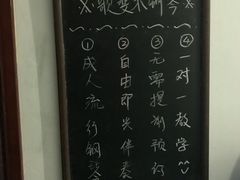 ①成人流行钢琴
②自由即兴伴奏
③无需提前预订
④一对一教学